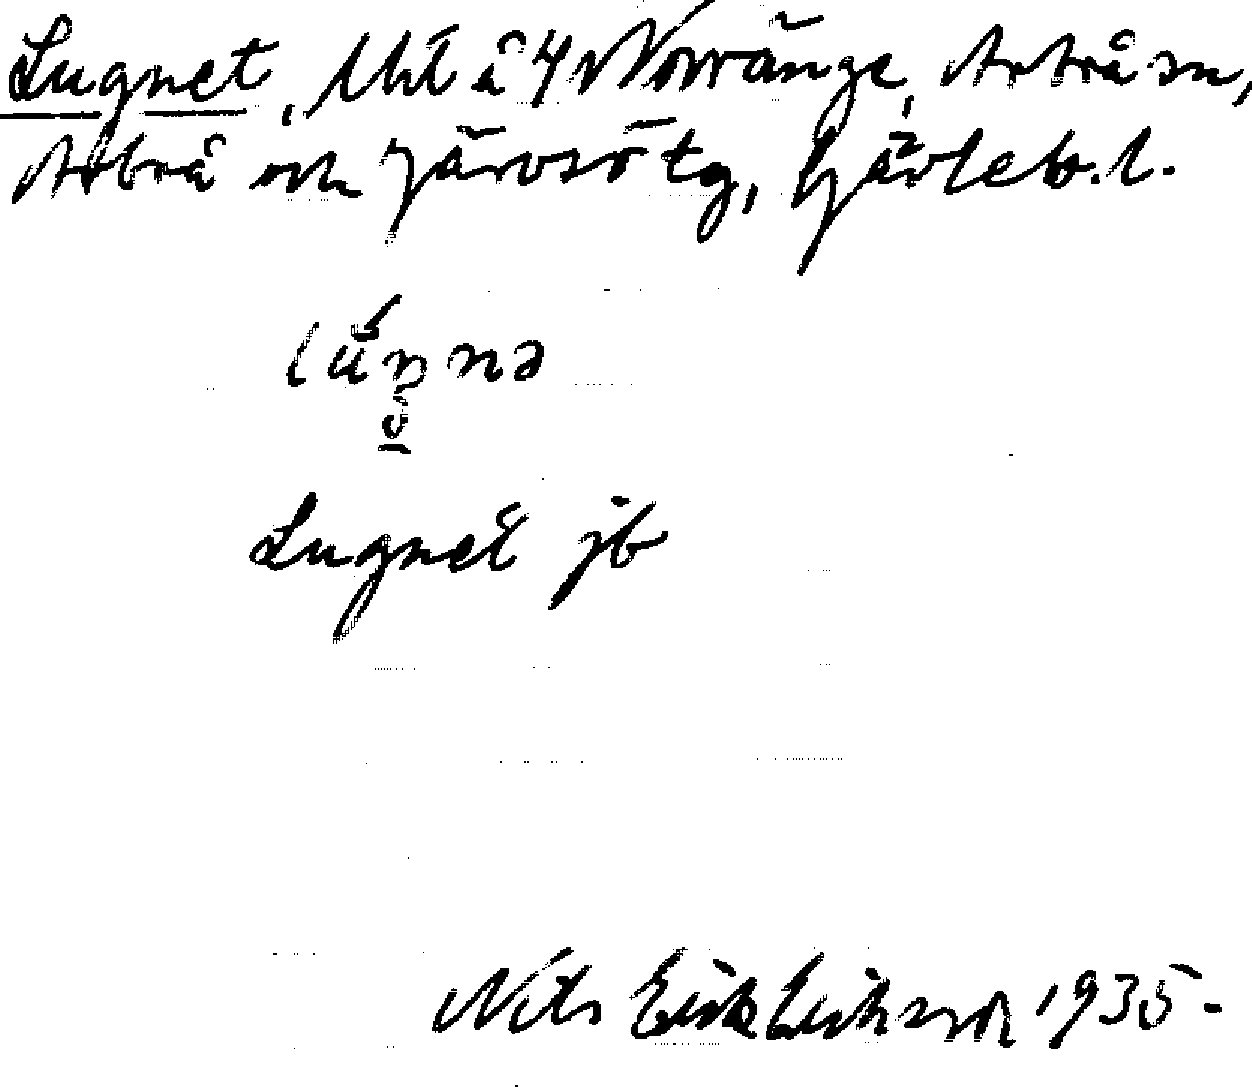 Lugnet, lht å 4 Norränge, Arbrå sn,
Arbrå och Järvsö tg, Gävleb.l.
Lugnet jb
Nils Erik Eriksson 1935-